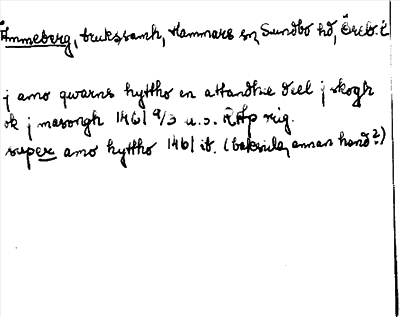 Åmmeberg, brukssamh, Hammars sn, Sundbo hd, Öreb. l
j amo qwarns hyttho en attandhe deel j skogh
ok j masongh 1461 9/3 u.s. RAp reg.
super amo hyttho 1461 ib. (baksida, annan hand?)